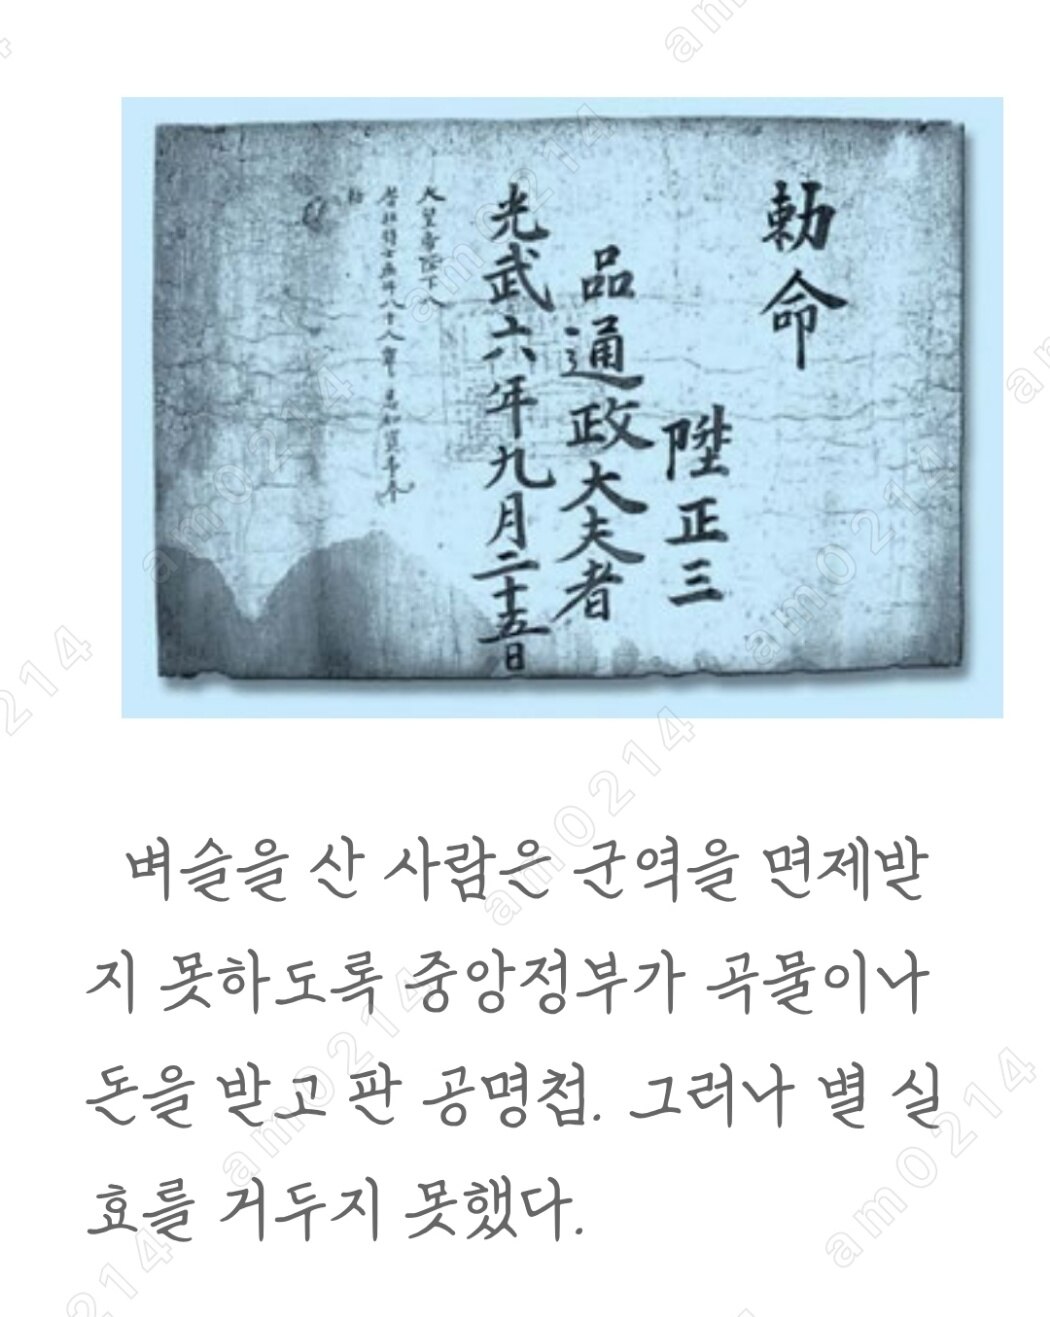 勅命
陞正三
品通政大夫者
光武六年九月二十五日
大皇帝陛下
벼슬을 산 사람은 군역을 면제받
지 못하도록 중앙정부가 곡물이나
돈을 받고 판 공명첩. 그러나 별 실
효를 거두지 못했다.
am0214